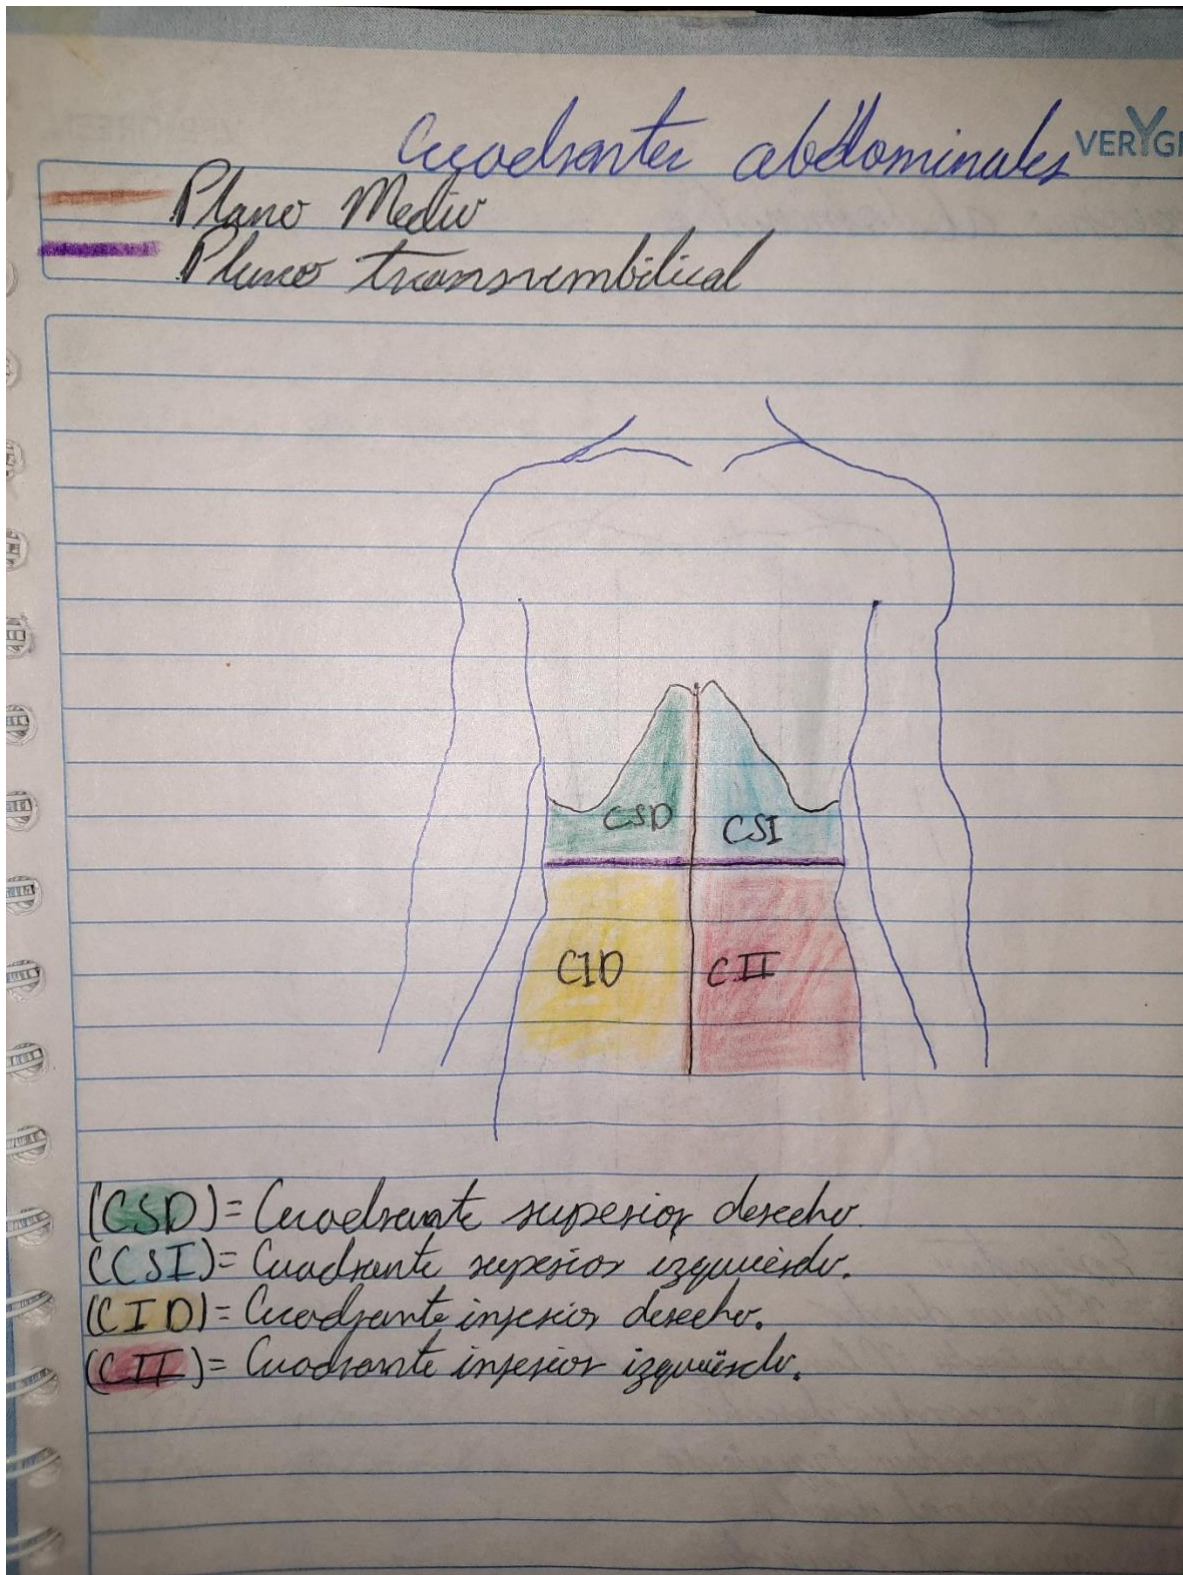 Cuadrantes abdominales
VERYG
Plano Medio
Plano transumbilical
CSD
CSI
CID
CII
(CSD)= Cuadrante superior derecho.
(CSI)= Cuadrante superior izquierdo.
(CID)= Cuadrante inferior derecho.
(CII)= Cuadrante inferior izquierdo.